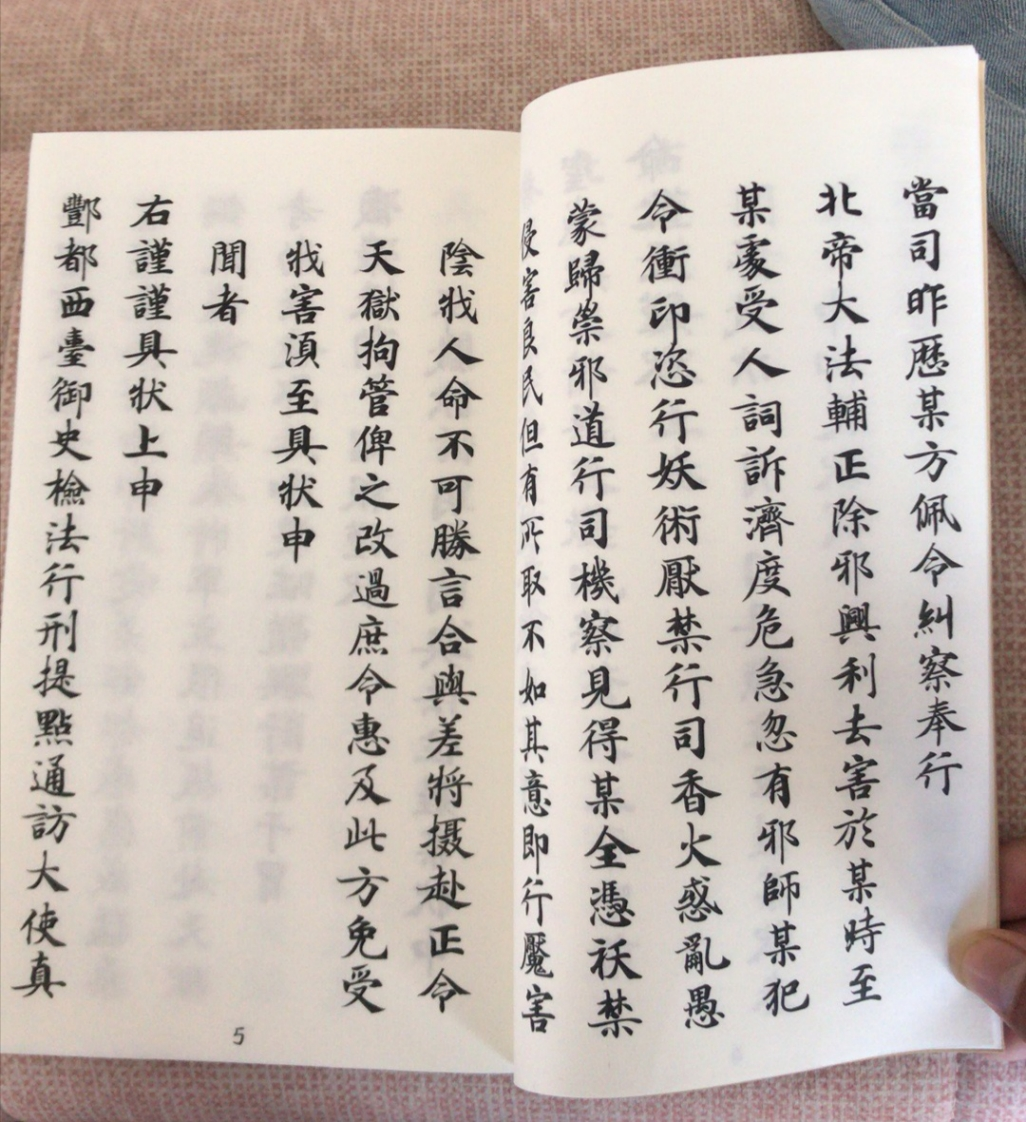 當司昨歷某方佩令糾察奉行
北帝大法輔正除邪興利去害於某時至
某處受人詞訴濟度危急忽有邪師某犯
令衝印恣行妖術厭禁行司香火惑亂愚
蒙歸崇邪道行司機察見得某全憑祅禁
侵害良民但有所取不如其意即行魘害
陰戕人命不可勝言合與差將摄赴正令
天獄拘管俾之改過庶令惠及此方免受
戕害湏至具狀申
聞者
右謹謹具状上申
酆都西臺御史檢法行刑提點通訪大使真
5